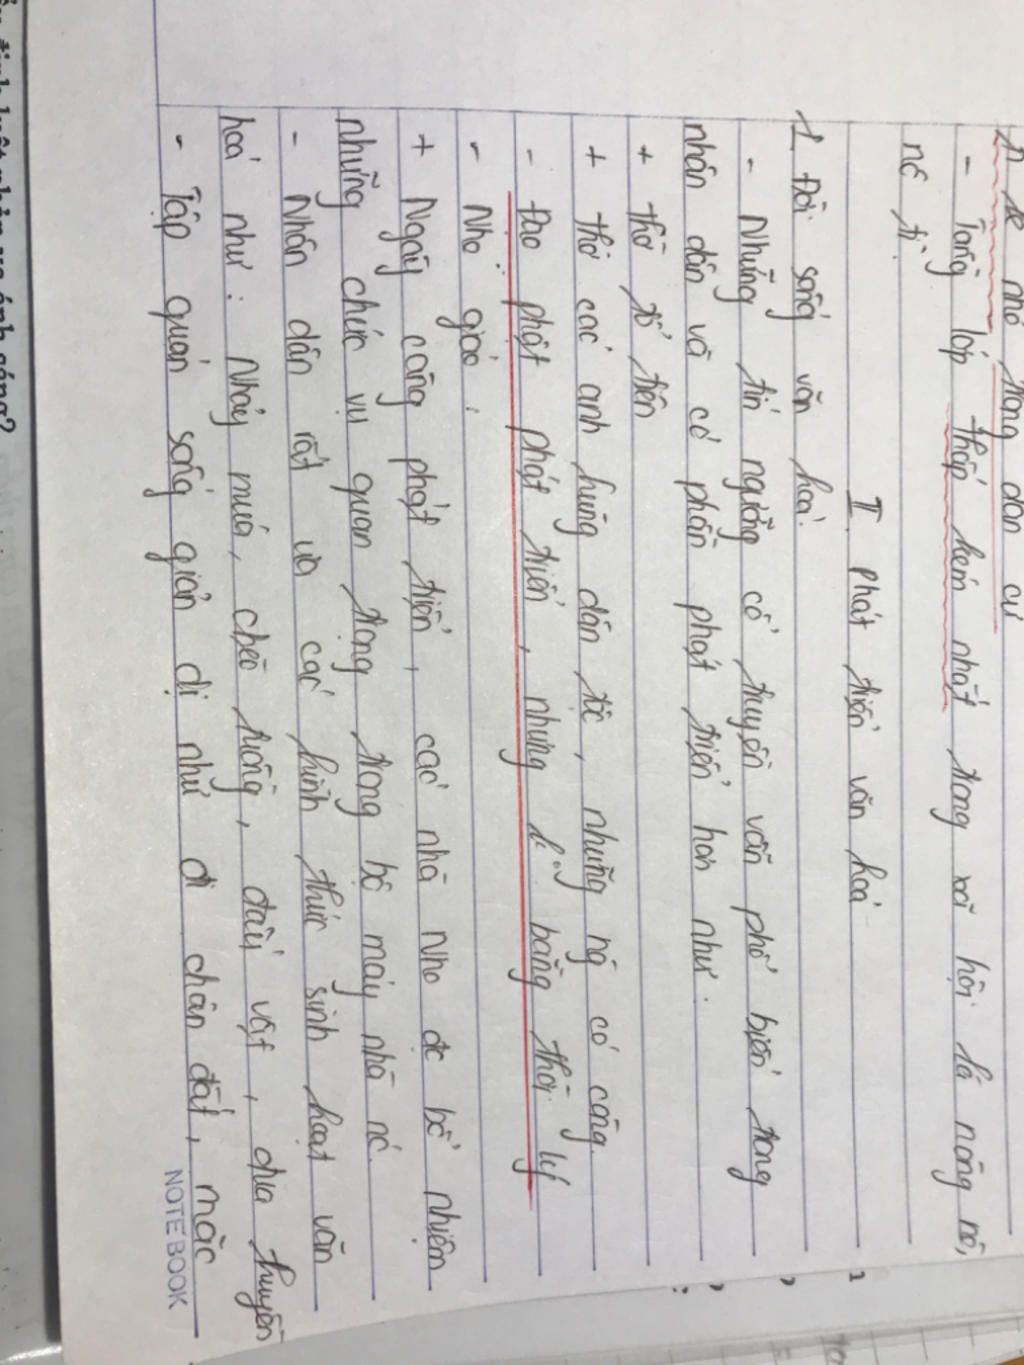 nhỏ trong dân cư
- Tầng lớp thấp kém nhất trong xã hội là nông nô,
nô tì.
II. phát triển văn hoá
1. Đời sống văn hoá.
- Những tín ngưỡng cổ truyền vẫn phổ biến trong
nhân dân và có phần phát triển hơn như:
+ thờ tổ tiên
+ thờ các anh hùng dân tộc, những ng có công.
- Đạo phật phát triển, nhưng k bằng thời lý
- Nho giáo:
+ Ngày càng phát triển, các nhà Nho đc bổ nhiệm
những chức vụ quan trọng trong bộ máy nhà nc.
- Nhân dân rất ưa các hình thức sinh hoạt văn
hoá như: Nhảy múa, chèo tuồng, đấu vật, đua thuyền
- Tập quán sống giản dị như đi chân đất, mặc
NOTEBOOK
định luật phản xạ ánh sáng?